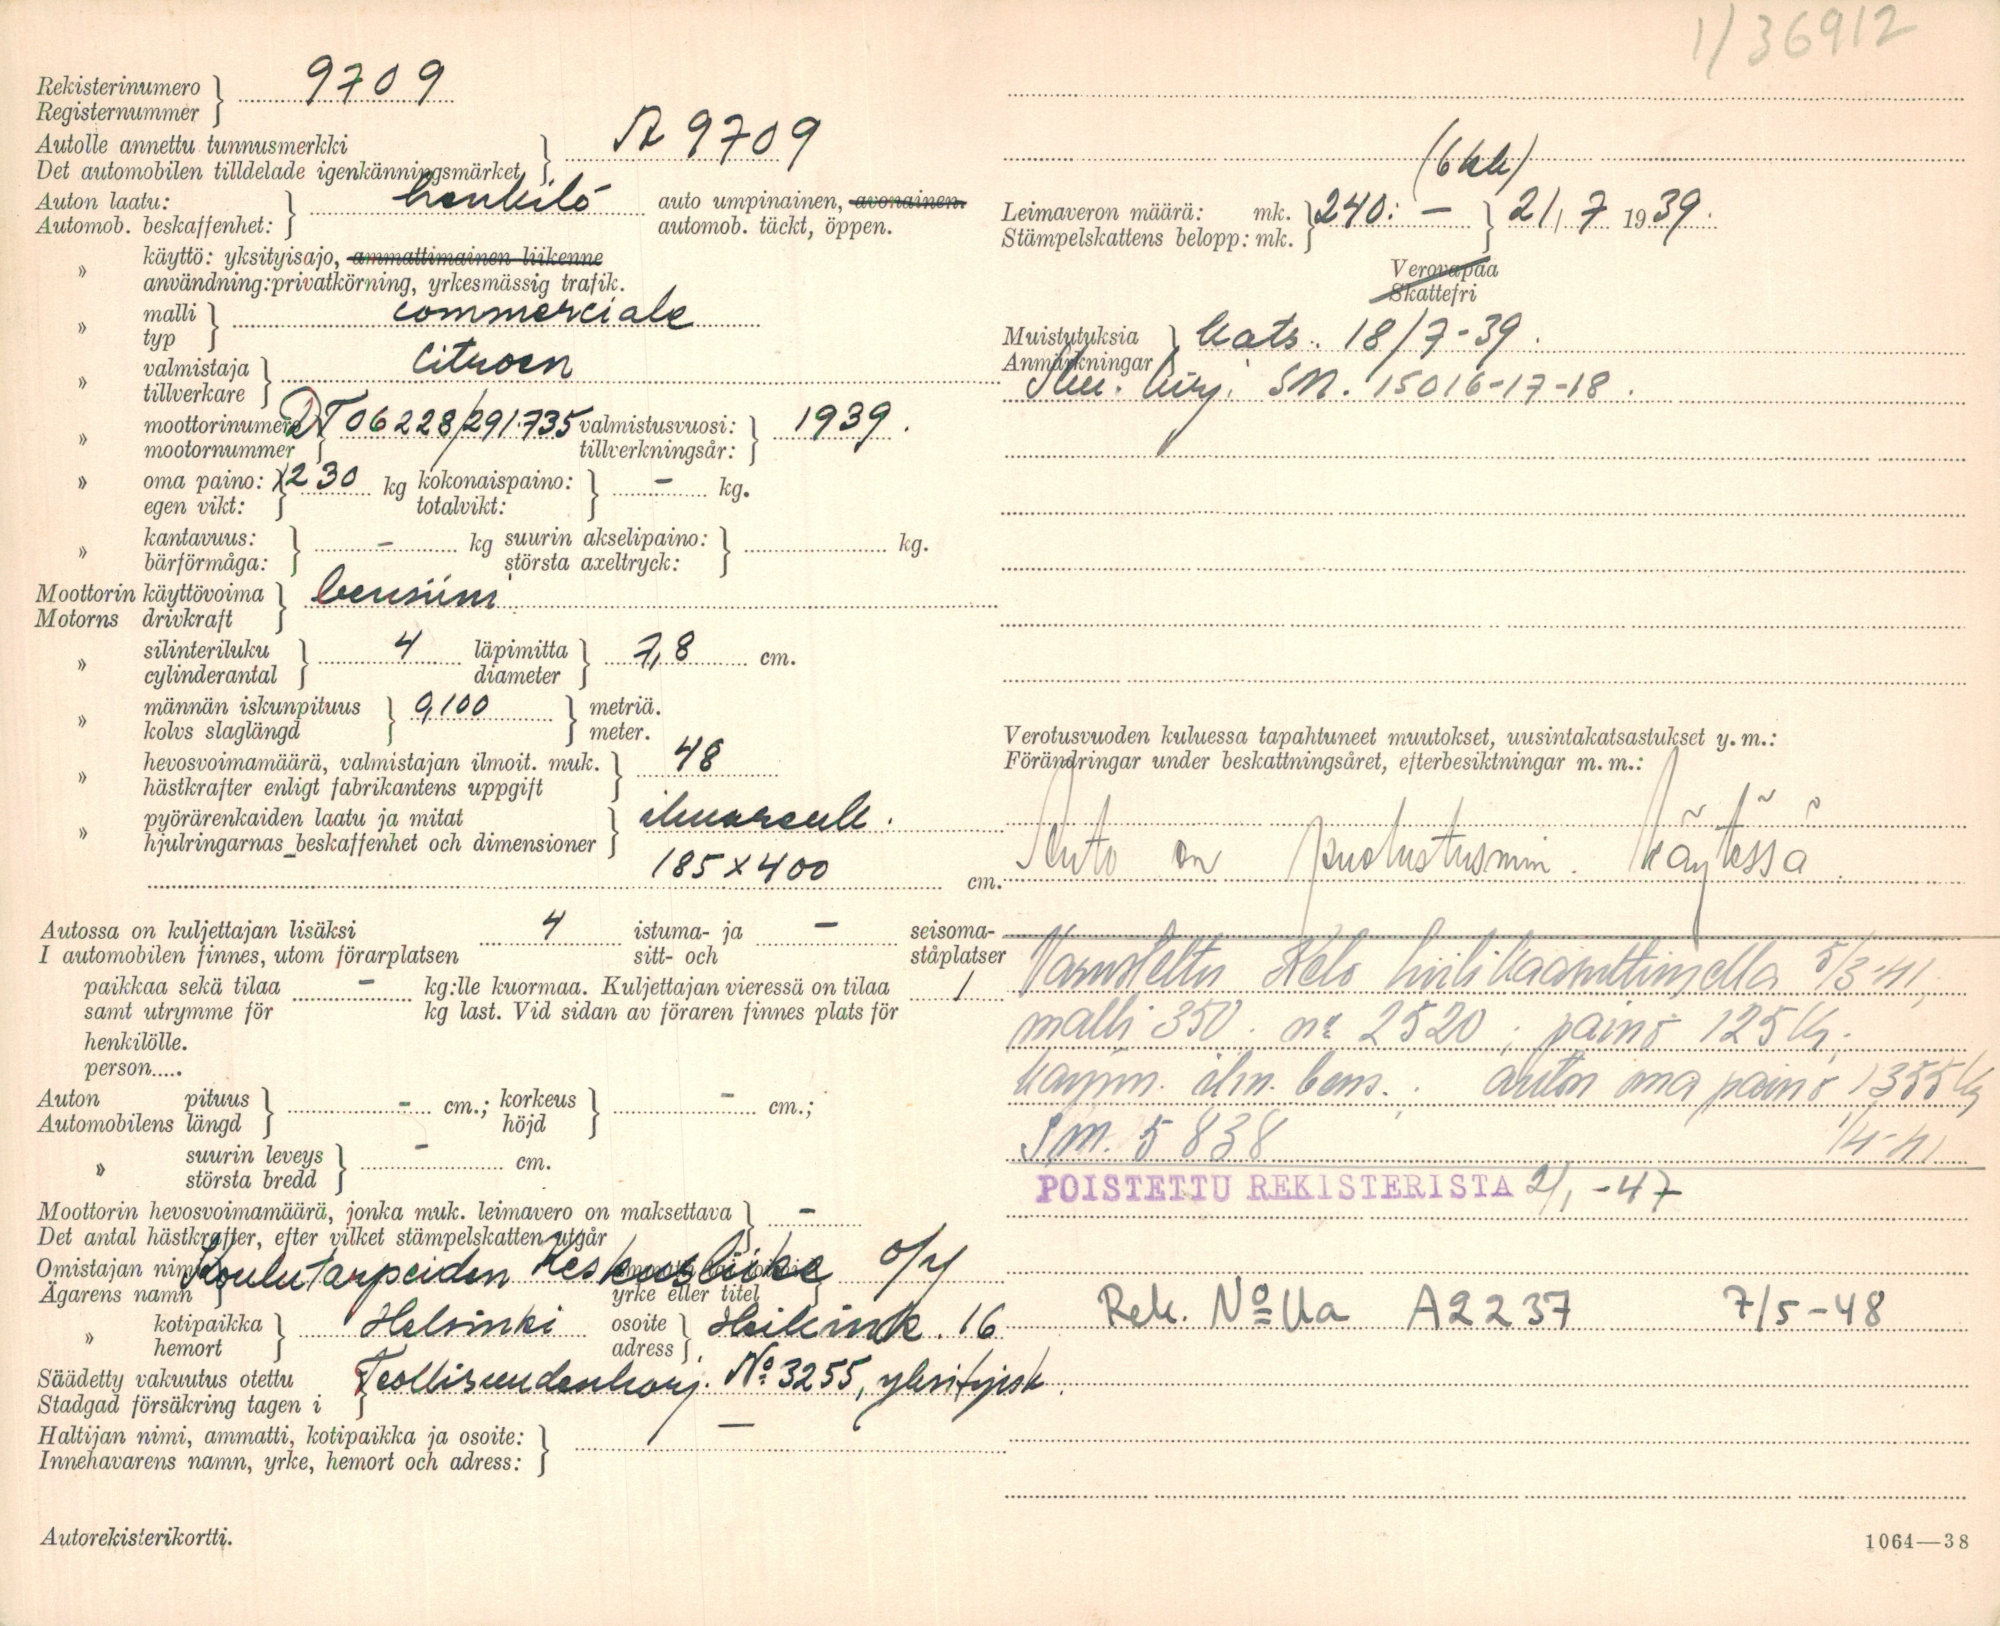 1/36912
Rekisterinumero } 9709
Registernummer
Autolle annettu tunnusmerkki } A 9709
Det automobilen tilldelade igenkänningsmärket
Auton laatu: } henkilö auto umpinainen, avonainen.
Automob. beskaffenhet: automob. täckt, öppen.
» käyttö: yksityisajo, ammattimainen liikenne
användning: privatkörning, yrkesmässig trafik.
» malli } commerciale
typ
» valmistaja } Citroen
tillverkare
» moottorinumero } DT 06228/291.735 valmistusvuosi: } 1939.
mootornummer tillverkningsår:
» oma paino: } 1230 kg kokonaispaino: } – kg.
egen vikt: totalvikt:
» kantavuus: } – kg suurin akselipaino: } kg.
bärförmåga: största axeltryck:
Moottorin käyttövoima } bensiini
Motorns drivkraft
» silinteriluku } 4 läpimitta } 7,8 cm.
cylinderantal diameter
» männän iskunpituus } 0,100 metriä.
kolvs slaglängd meter.
» hevosvoimamäärä, valmistajan ilmoit. muk. } 48
hästkrafter enligt fabrikantens uppgift
» pyörärenkaiden laatu ja mitat }
hjulringarnas beskaffenhet och dimensioner
185 x 400 cm.
Autossa on kuljettajan lisäksi 4 istuma- ja – seisoma-
I automobilen finnes, utom förarplatsen sitt- och ståplatser
paikkaa sekä tilaa – kg:lle kuormaa. Kuljettajan vieressä on tilaa 1
samt utrymme för kg last. Vid sidan av föraren finnes plats för
henkilölle.
person.....
Auton pituus } – cm.; korkeus } – cm.;
Automobilens längd höjd
» suurin leveys } – cm.
största bredd
Moottorin hevosvoimamäärä, jonka muk. leimavero on maksettava } –
Det antal hästkrafter, efter vilket stämpelskatten utgår
Omistajan nimi } Koulutarpeiden Keskusliike O/Y
Ägarens namn yrke eller titel
» kotipaikka } Helsinki osoite } Heikink. 16
hemort adress
Säädetty vakuutus otettu } Teollisuudenharj. No: 3255, yksityisk.
Stadgad försäkring tagen i
Haltijan nimi, ammatti, kotipaikka ja osoite: } –
Innehavarens namn, yrke, hemort och adress:
Autorekisterikortti.
(6 kk)
Leimaveron määrä: mk. } 240: – } 21/7 1939.
Stämpelskattens belopp: mk.
Verovapaa
Skattefri
Muistutuksia } kats. 18/7-39.
Anmärkningar
kirj. SM. 15016-17-18.
Verotusvuoden kuluessa tapahtuneet muutokset, uusintakatsastukset y. m.:
Förändringar under beskattningsåret, efterbesiktningar m. m.:
Auto on puolustusmin. käytössä.
Varustettu Kelo hiilikaasuttimella 5/3-41,
malli 350. nr 2520; paino 125 kg.
käynn. ilm. bens.; auton oma paino 1355 kg
SM. 5838 1/4-41
POISTETTU REKISTERISTA 2/1-47
Rek. No:lla A2237 7/5-48
1064—38